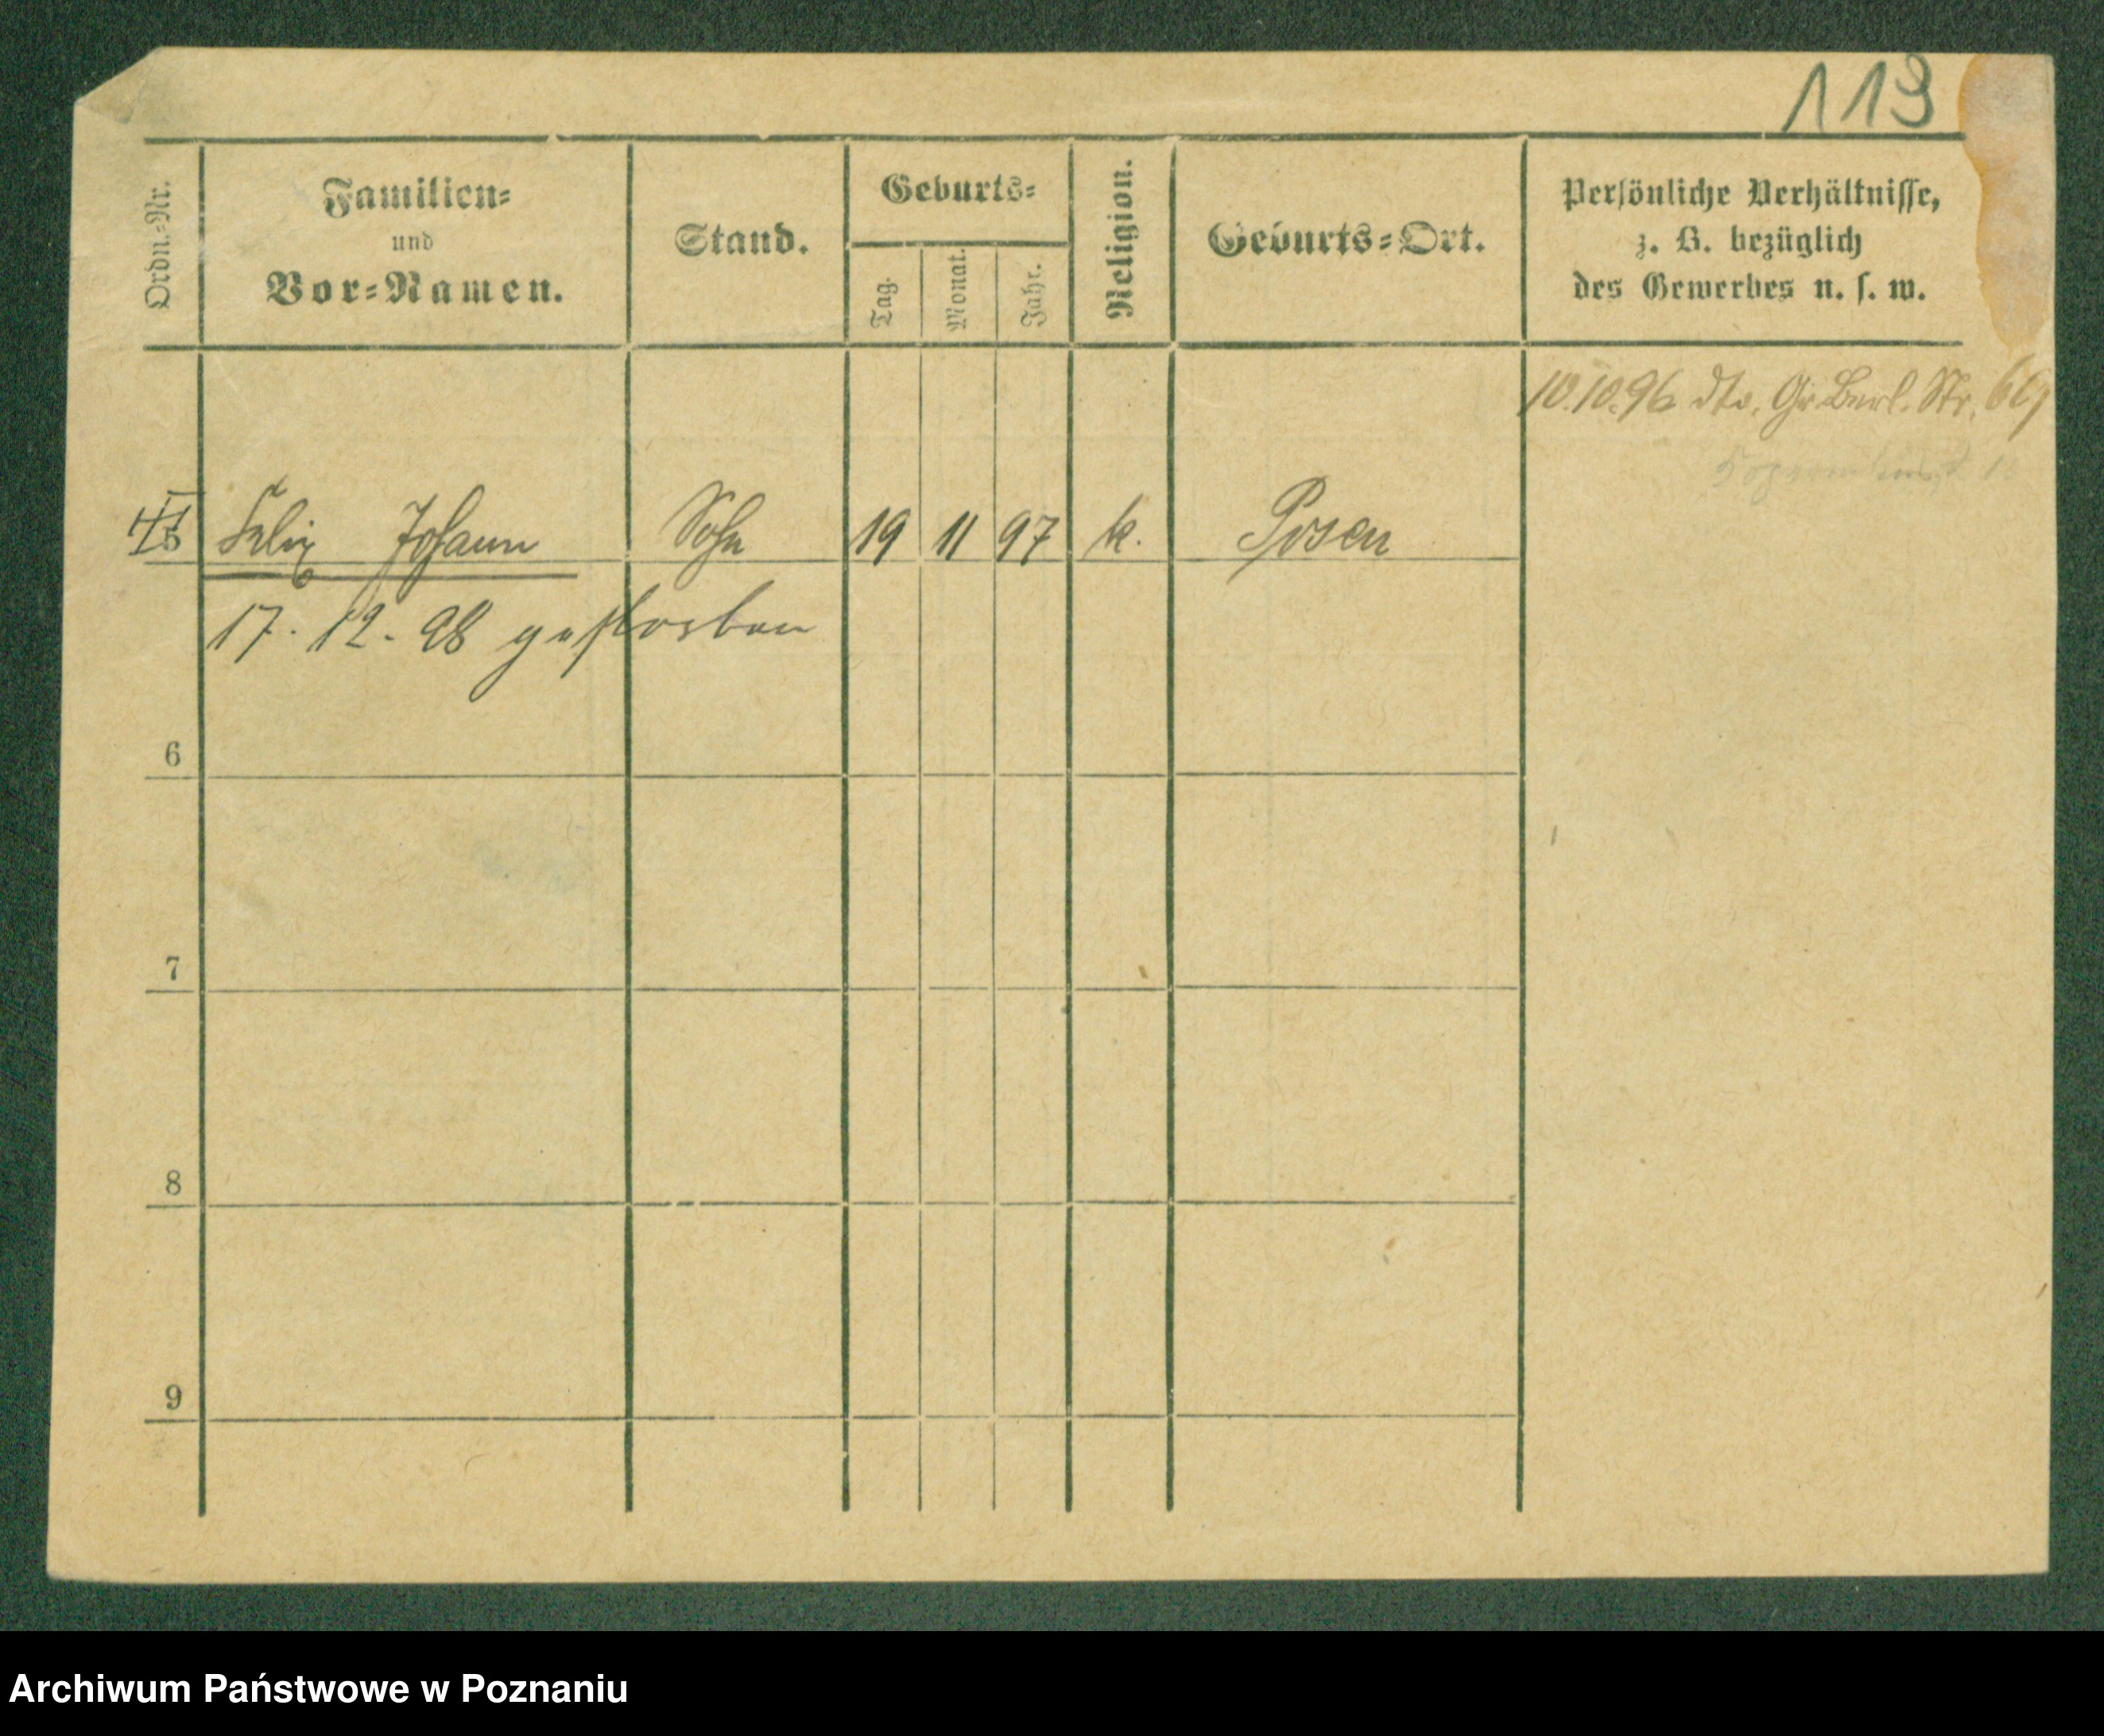 113
Ordn.-Nr.
Familien-
und
Vor-Namen.
Stand.
Geburts-
Tag.
Monat.
Jahr.
Religion.
Geburts-Ort.
Persönliche Verhältnisse,
z. B. bezüglich
des Gewerbes u. s. w.
10.10.96 dto. Gr Berl. Str.
5 Felix Johann Sohn 19 11 97 k. Posen
17. 12. 98 gestorben
6
7
8
9
Archiwum Państwowe w Poznaniu